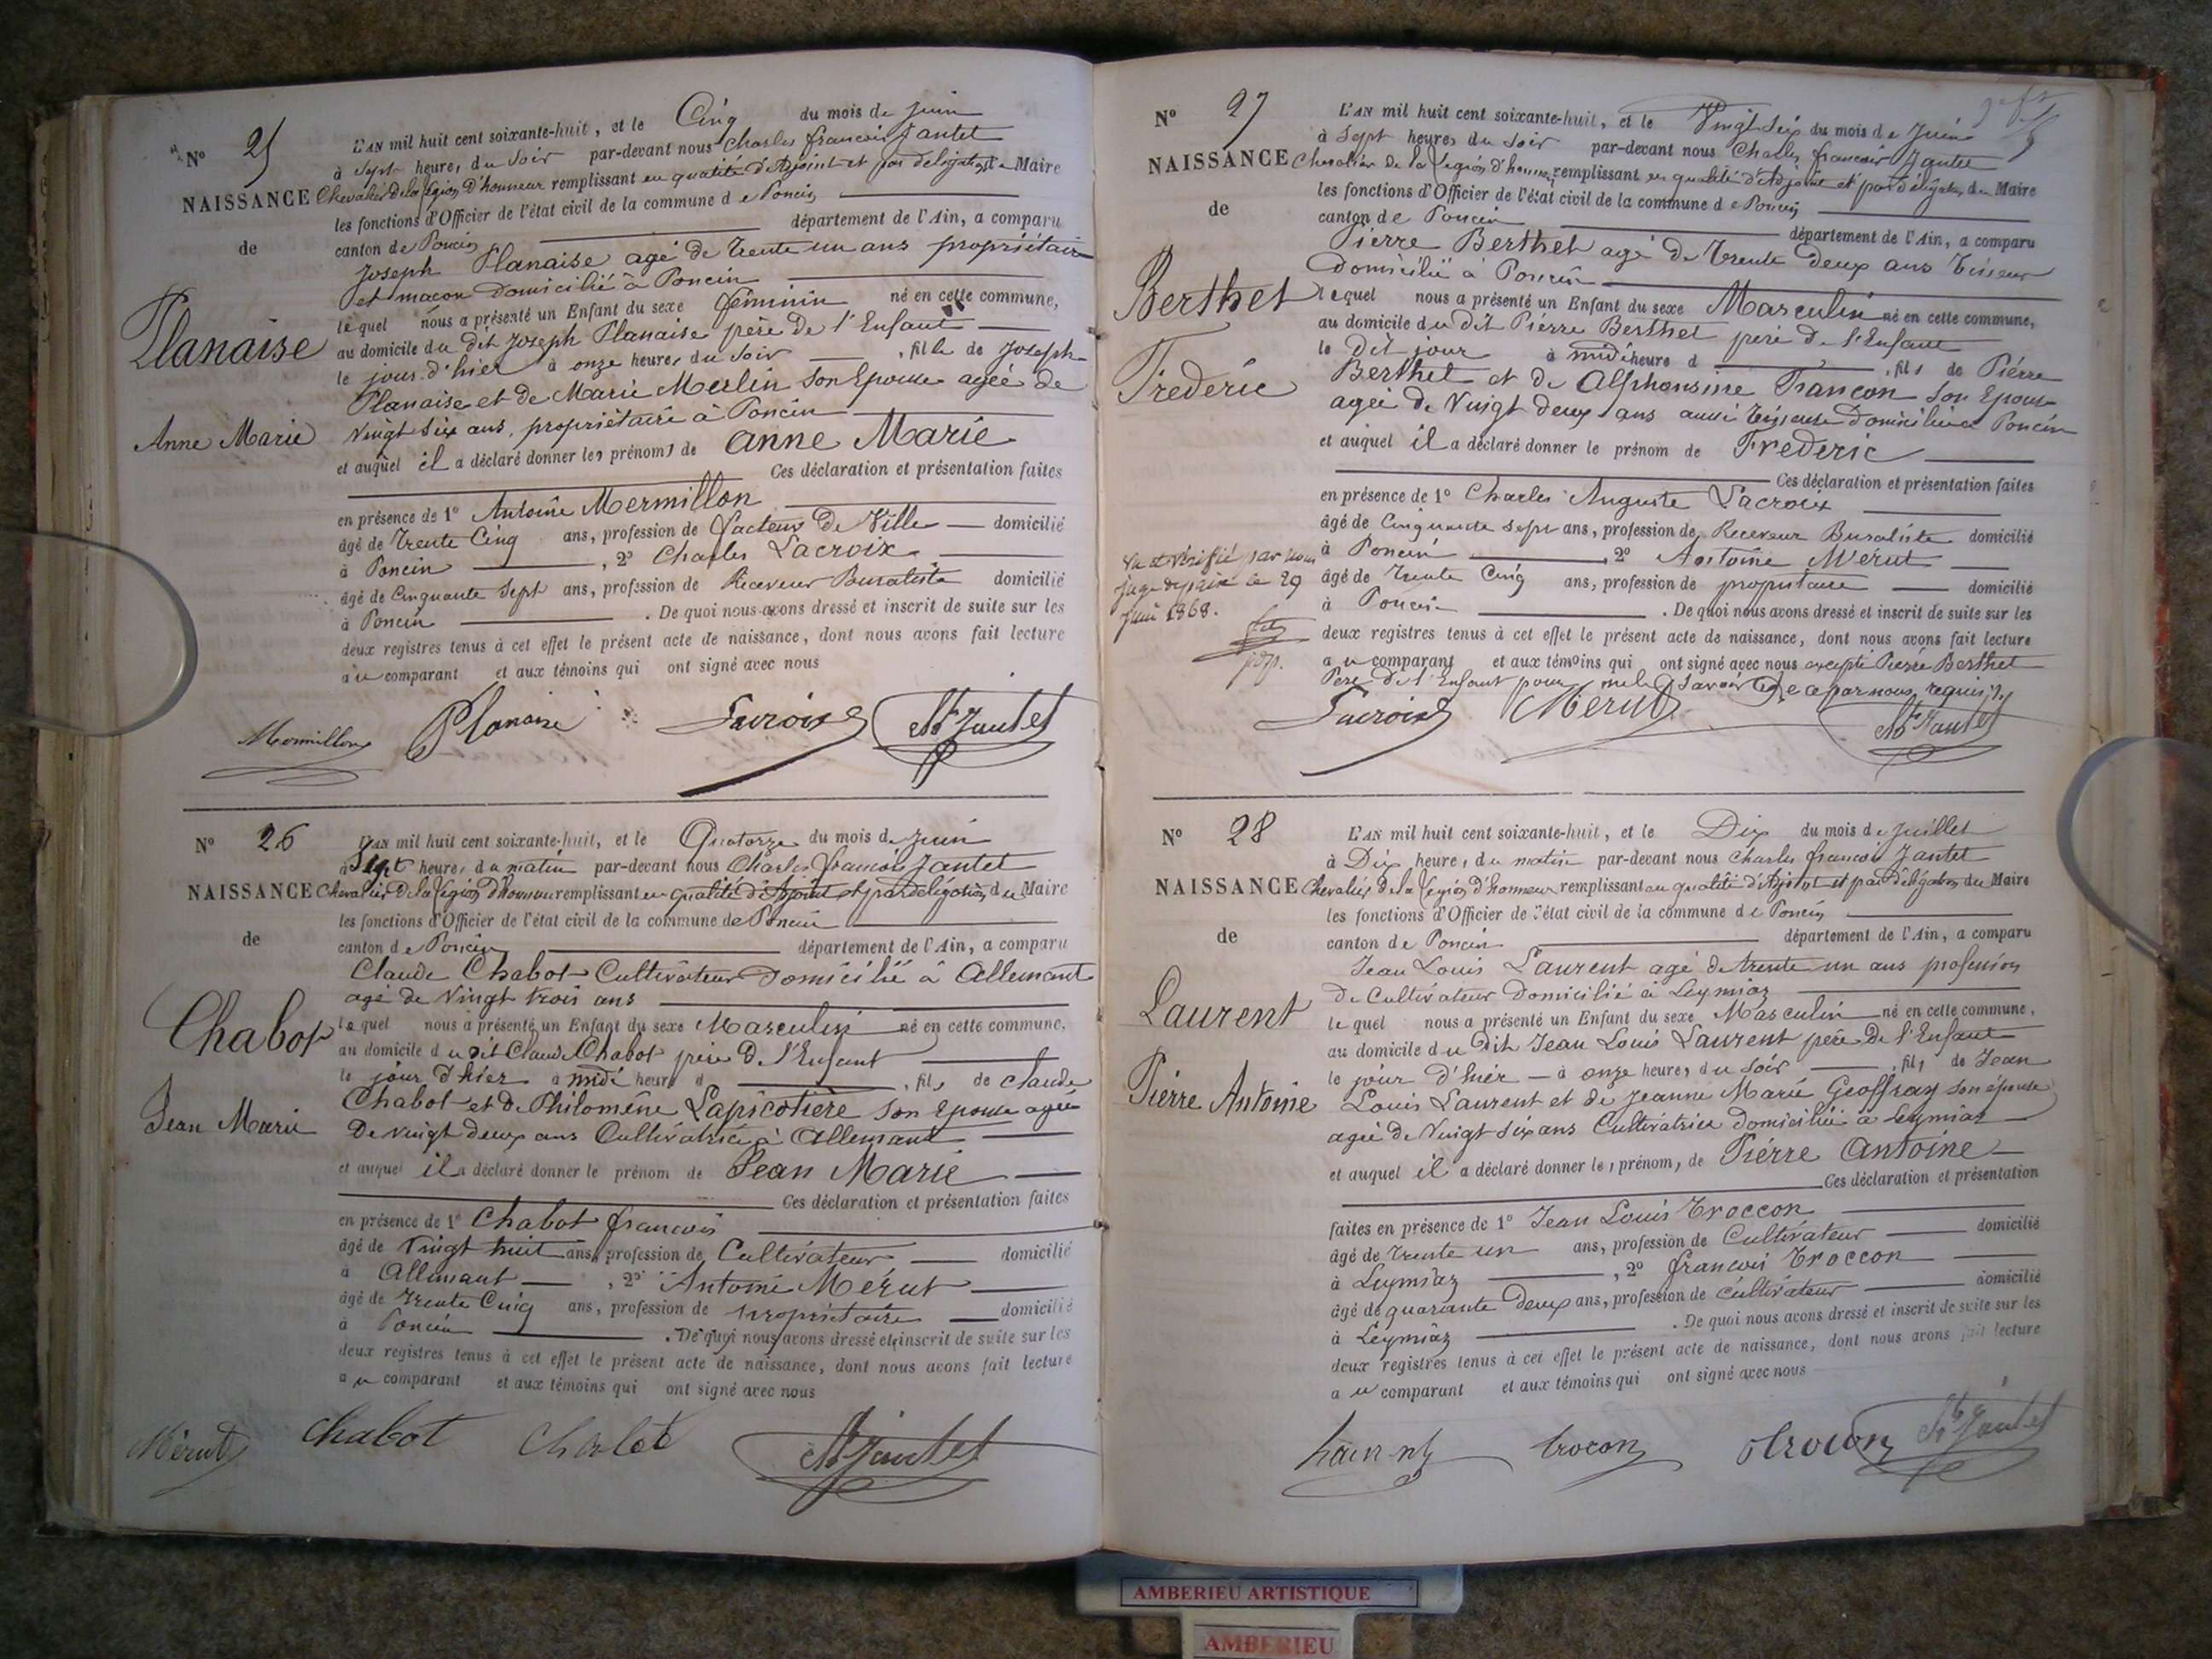 N° 25
L'AN mil huit cent soixante-huit, et le Cinq du mois de juin
à Sept heures du Soir par-devant nous Charles françois Jantet
NAISSANCE Chevalier de la légion d'honneur remplissant en qualité d'Adjoint et par délégation du Maire
les fonctions d'Officier de l'état civil de la commune de Poncin
de
canton de Poncin département de l'Ain, a comparu
Joseph Planaise agé de trente un ans propriétaire
et maçon domicilié à Poncin
lequel nous a présenté un Enfant du sexe féminin né en cette commune,
Planaise
au domicile du dit Joseph Planaise père de l'Enfant
le jour d'hier à onze heures du Soir , fille de Joseph
Planaise et de Marie Merlin son Epouse agée de
Anne Marie
Vingt Six ans, propriétaire à Poncin
et auquel il a déclaré donner les prénoms de Anne Marie
Ces déclaration et présentation faites
en présence de 1° Antoine Mermillon
âgé de trente Cinq ans, profession de facteur de Ville domicilié
à Poncin , 2° Charles Lacroix
âgé de Cinquante Sept ans, profession de Receveur Buraliste domicilié
à Poncin . De quoi nous avons dressé et inscrit de suite sur les
deux registres tenus à cet effet le présent acte de naissance, dont nous avons fait lecture
au comparant et aux témoins qui ont signé avec nous
Mermillon Planaise Lacroix Jantet
N° 26
L'AN mil huit cent soixante-huit, et le Quatorze du mois de juin
à Sept heures du matin par-devant nous Charles françois Jantet
NAISSANCE Chevalier de la légion d'honneur remplissant en qualité d'Adjoint et par délégation du Maire
les fonctions d'Officier de l'état civil de la commune de Poncin
de
canton de Poncin département de l'Ain, a comparu
Claude Chabot Cultivateur domicilié à Allemant
agé de Vingt trois ans
lequel nous a présenté un Enfant du sexe Masculin né en cette commune,
Chabot
au domicile du dit Claude Chabot père de l'Enfant
le jour d'hier à midi heure d , fils de Claude
Chabot et de Philomène Lapicotière son Epouse agée
Jean Marie
de vingt deux ans Cultivatrice à Allemant
et auquel il a déclaré donner le prénom de Jean Marie
Ces déclaration et présentation faites
en présence de 1° Chabot françois
âgé de Vingt huit ans, profession de Cultivateur domicilié
à Allemant , 2° Antoine Mérut
âgé de trente Cinq ans, profession de propriétaire domicilié
à Poncin . De quoi nous avons dressé et inscrit de suite sur les
deux registres tenus à cet effet le présent acte de naissance, dont nous avons fait lecture
au comparant et aux témoins qui ont signé avec nous
Mérut Chabot Chabot Jantet
N° 27
L'AN mil huit cent soixante-huit, et le Vingt Six du mois de Juin
à Sept heures du Soir par-devant nous Charles françois Jantet
NAISSANCE Chevalier de la légion d'honneur remplissant en qualité d'Adjoint et par délégation du Maire
les fonctions d'Officier de l'état civil de la commune de Poncin
de
canton de Poncin département de l'Ain, a comparu
Pierre Berthet agé de trente deux ans tisseur
domicilié à Poncin
Berthet
lequel nous a présenté un Enfant du sexe Masculin né en cette commune,
au domicile du dit Pierre Berthet père de l'Enfant
le dit jour à midi heure d , fils de Pierre
Frederic
Berthet et de Alphonsine Françon son Epouse
agée de Vingt deux ans aussi tisseuse domiciliée à Poncin
et auquel il a déclaré donner le prénom de Frederic
Ces déclaration et présentation faites
en présence de 1° Charles Auguste Lacroix
âgé de Cinquante Sept ans, profession de Receveur Buraliste domicilié
à Poncin 2° Antoine Mérut
âgé de trente Cinq ans, profession de propriétaire domicilié
à Poncin . De quoi nous avons dressé et inscrit de suite sur les
Vu et vérifié par nous
juge de paix le 29
juin 1868.
deux registres tenus à cet effet le présent acte de naissance, dont nous avons fait lecture
au comparant et aux témoins qui ont signé avec nous excepté Pierre Berthet
Père de l'Enfant pour ne le savoir de ce par nous requis
Lacroix Mérut Jantet
N° 28
L'AN mil huit cent soixante-huit, et le Dix du mois de Juillet
à Dix heures du matin par-devant nous Charles françois Jantet
NAISSANCE Chevalier de la légion d'honneur remplissant en qualité d'Adjoint et par délégation du Maire
les fonctions d'Officier de l'état civil de la commune de Poncin
de
canton de Poncin département de l'Ain, a comparu
Jean Louis Laurent agé de trente un ans profession
de Cultivateur domicilié à Leymiaz
Laurent
lequel nous a présenté un Enfant du sexe Masculin né en cette commune,
au domicile du dit Jean Louis Laurent père de l'Enfant
le jour d'hier à onze heures du Soir , fils de Jean
Pierre Antoine
Louis Laurent et de Jeanne Marie Geoffray son épouse
agée de Vingt six ans Cultivatrice domiciliée à Leymiaz
et auquel il a déclaré donner les prénoms, de Pierre Antoine
Ces déclaration et présentation
faites en présence de 1° Jean Louis Troccon
âgé de trente un ans, profession de Cultivateur domicilié
à Leymiaz , 2° françois Troccon
âgé de quarante deux ans, profession de Cultivateur domicilié
à Leymiaz . De quoi nous avons dressé et inscrit de suite sur les
deux registres tenus à cet effet le présent acte de naissance, dont nous avons fait lecture
au comparant et aux témoins qui ont signé avec nous
trocon Jantet
AMBERIEU ARTISTIQUE
AMBERIEU